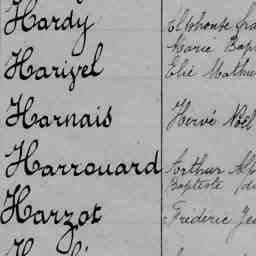 Hardy
Alphonse
Marie Bap
Harivel
Elie Mathur
Harnais
Hervé Noël
Harrouard
Arthur Alp
Baptiste
Harzot
Frédéric Je